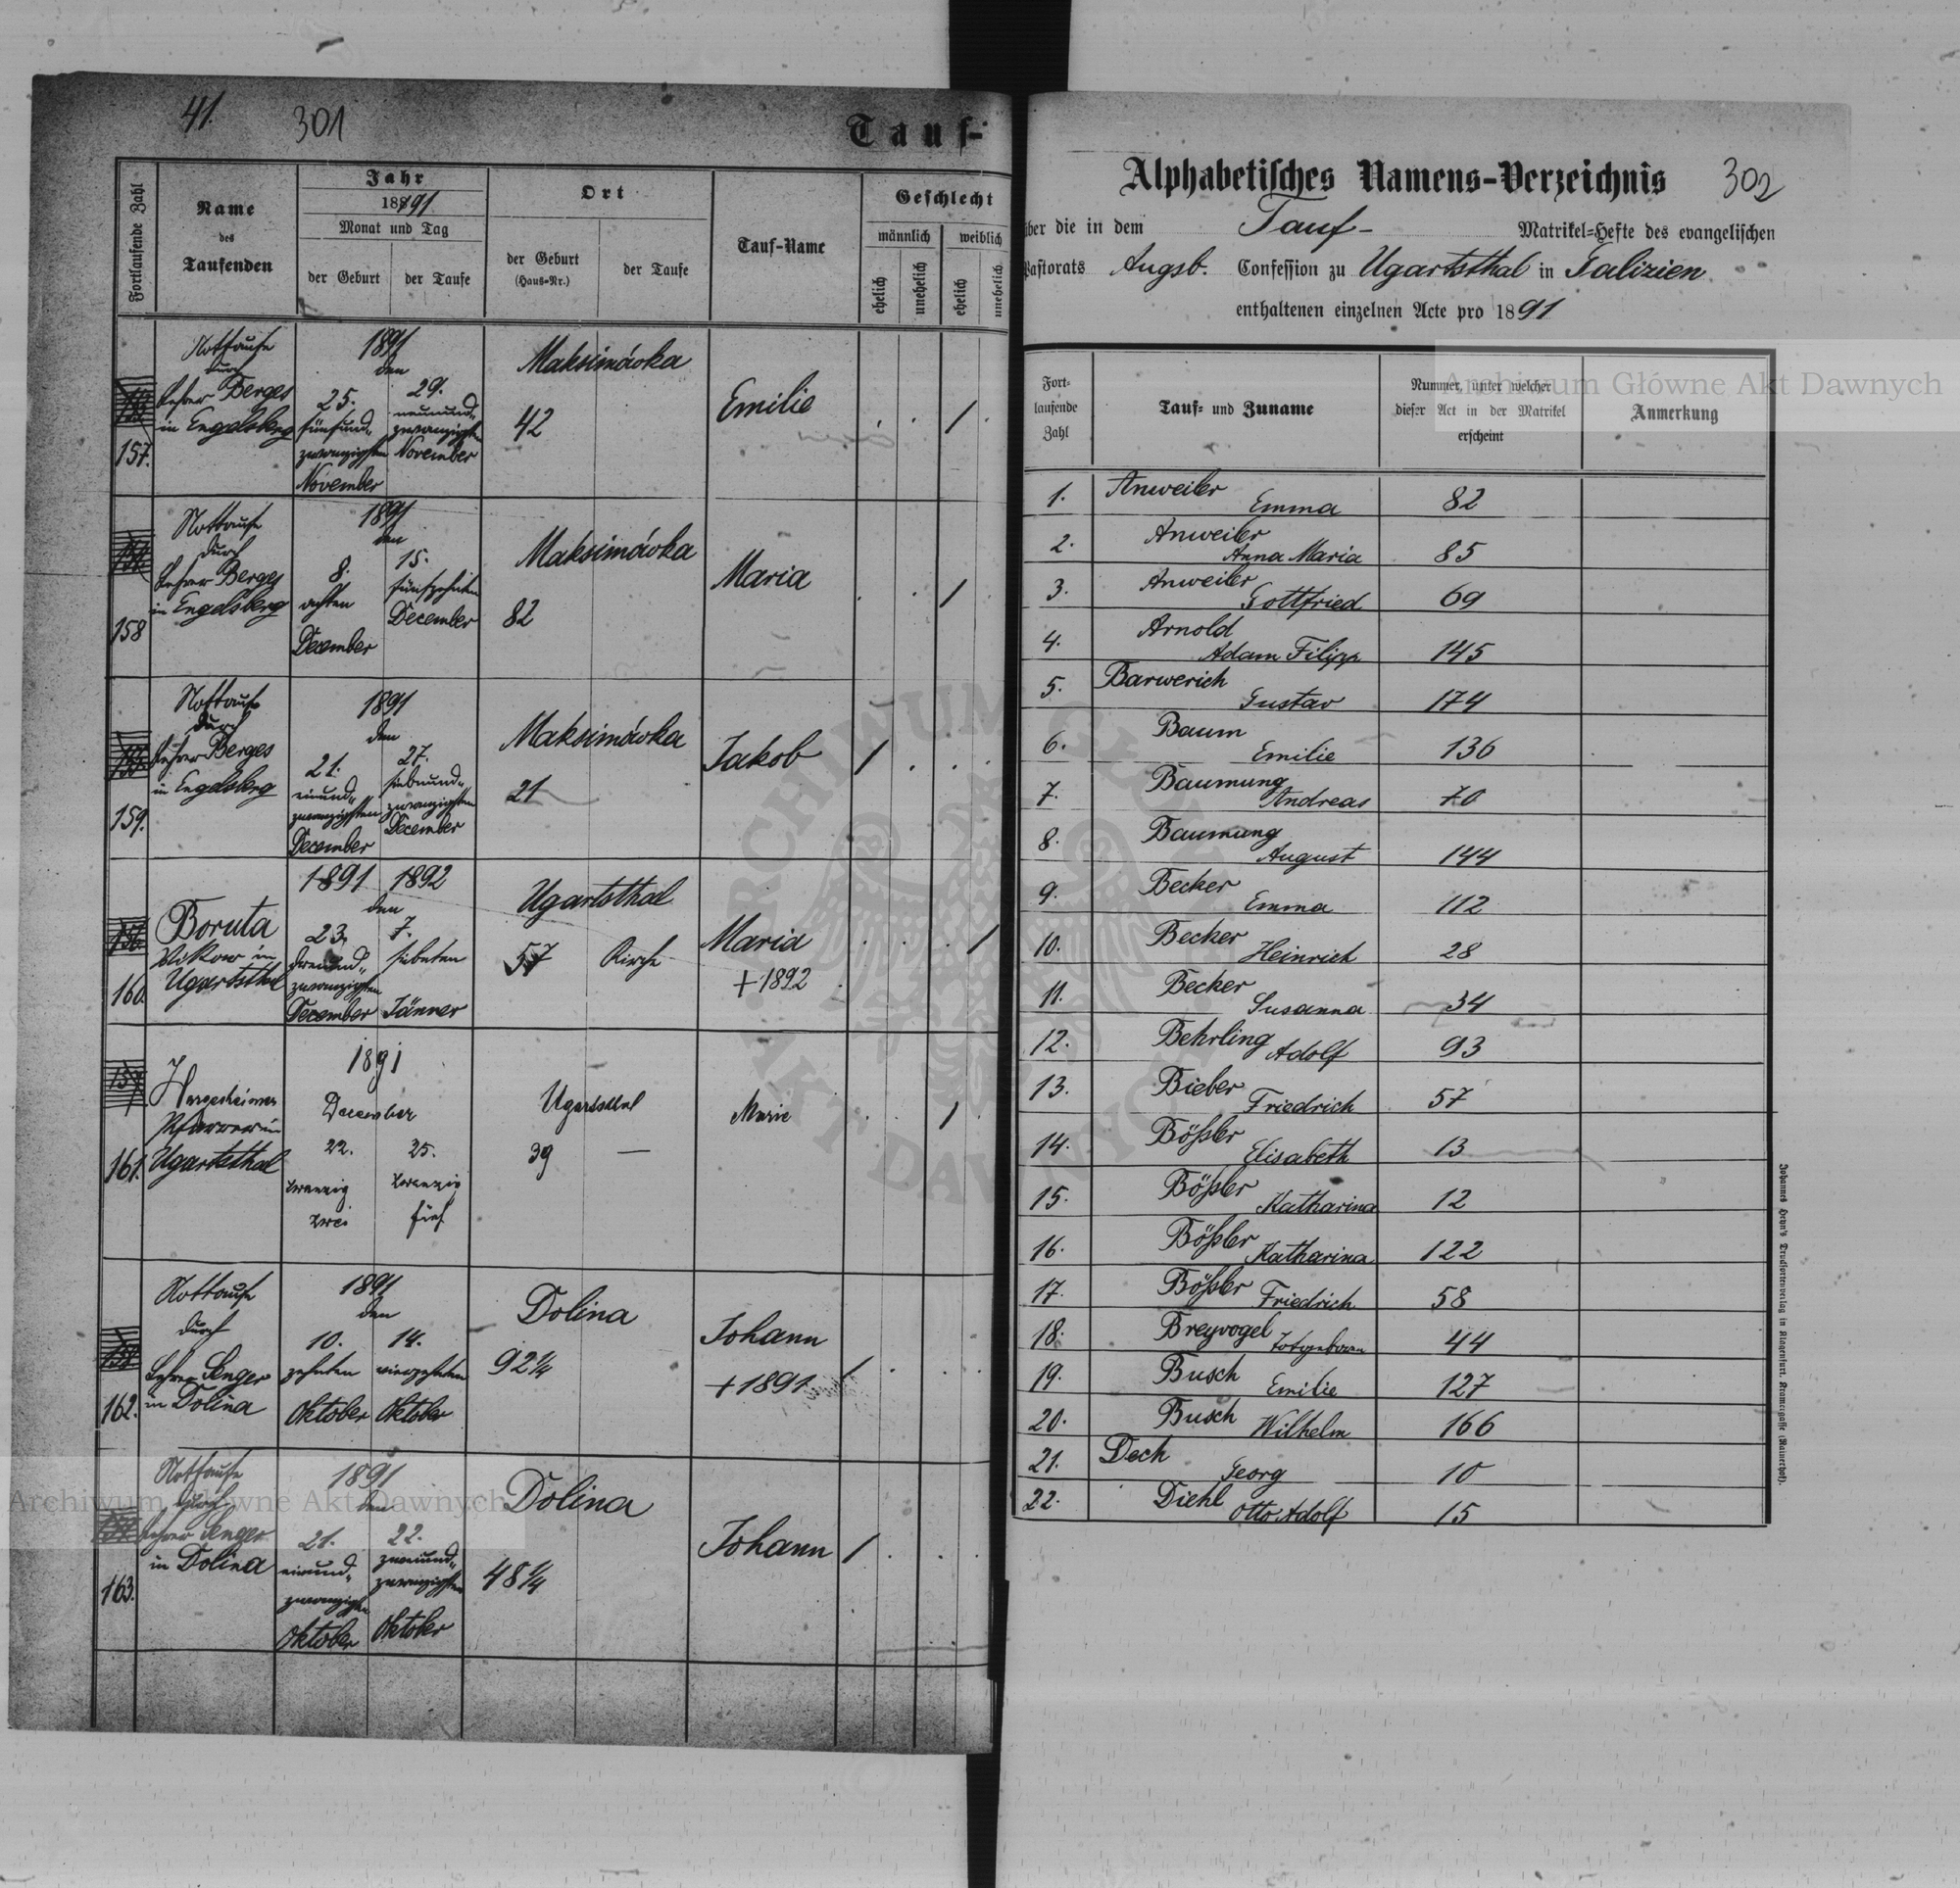 41.
301
Tauf-
Fortlaufende Zahl
Name
des
Taufenden
Jahr
1891
Monat und Tag
der Geburt
der Taufe
Ort
der Geburt
(Haus-Nr.)
der Taufe
Tauf-Name
Geschlecht
männlich
weiblich
ehelich
unehelich
ehelich
unehelich
157.
Nottaufe
durch
Lehrer Berges
in Engelsberg
1891
den
25.
fünfund-
zwanzigsten
November
29.
neunund-
zwanzigsten
November
Maksimówka
42
Emilie
158
Nottaufe
durch
Lehrer Berges
in Engelsberg
1891
den
8.
achten
December
15.
fünfzehnten
December
Maksimówka
82
Maria
159.
Nottaufe
durch
Lehrer Berges
in Engelsberg
1891
den
21.
einund-
zwanzigsten
December
27.
siebenund-
zwanzigsten
December
Maksimówka
21
Jakob
160.
Boruta
Vikar in
Ugartsthal
1891 1892
den
23.
dreiund-
zwanzigsten
December
7.
siebeten
Jänner
Ugartsthal
57
Kirche
Maria
+ 1892
161.
Hargesheimer
Pfarrer in
Ugartsthal
1891
December
22.
zwanzig
zwei
25.
zwanzig
fünf
Ugartsthal
39
—
Marie
162.
Nottaufe
durch
Lehrer Senger
in Dolina
1891
den
10.
zehnten
Oktober
14.
vierzehnten
Oktober
Dolina
92¼
Johann
+ 1891
163.
Nottaufe
durch
Lehrer Senger
in Dolina
1891
den
21.
einund-
zwanzigsten
Oktober
22.
zweiund-
zwanzigsten
Oktober
Dolina
48¼
Johann
Alphabetisches Namens-Verzeichnis
302
über die in dem Tauf- Matrikel-Hefte des evangelischen
Pastorats Augsb. Confession zu Ugartsthal in Galizien
enthaltenen einzelnen Acte pro 1891
Fort-
laufende
Zahl
Tauf- und Zuname
Nummer, unter welcher
dieser Act in der Matrikel
erscheint
Anmerkung
1. Anweiler Emma 82
2. Anweiler Anna Maria 85
3. Anweiler Gottfried 69
4. Arnold Adam Filipp 145
5. Barwerich Gustav 174
6. Baum Emilie 136
7. Baumung Andreas 70
8. Baumung August 144
9. Becker Emma 112
10. Becker Heinrich 28
11. Becker Susanna 34
12. Behrling Adolf 93
13. Bieber Friedrich 57
14. Bößler Elisabeth 13
15. Bößler Katharina 12
16. Bößler Katharina 122
17. Bößler Friedrich 58
18. Breyvogel Totgeboren 44
19. Busch Emilie 127
20. Busch Wilhelm 166
21. Dech Georg 10
22. Diehl Otto Adolf 15
Johannes Heyn's Drucksortenverlag in Klagenfurt, Kramergasse (Rainerhof).
Archiwum Główne Akt Dawnych
Archiwum Główne Akt Dawnych
ARCHIWUM GŁÓWNE
AKT DAWNYCH